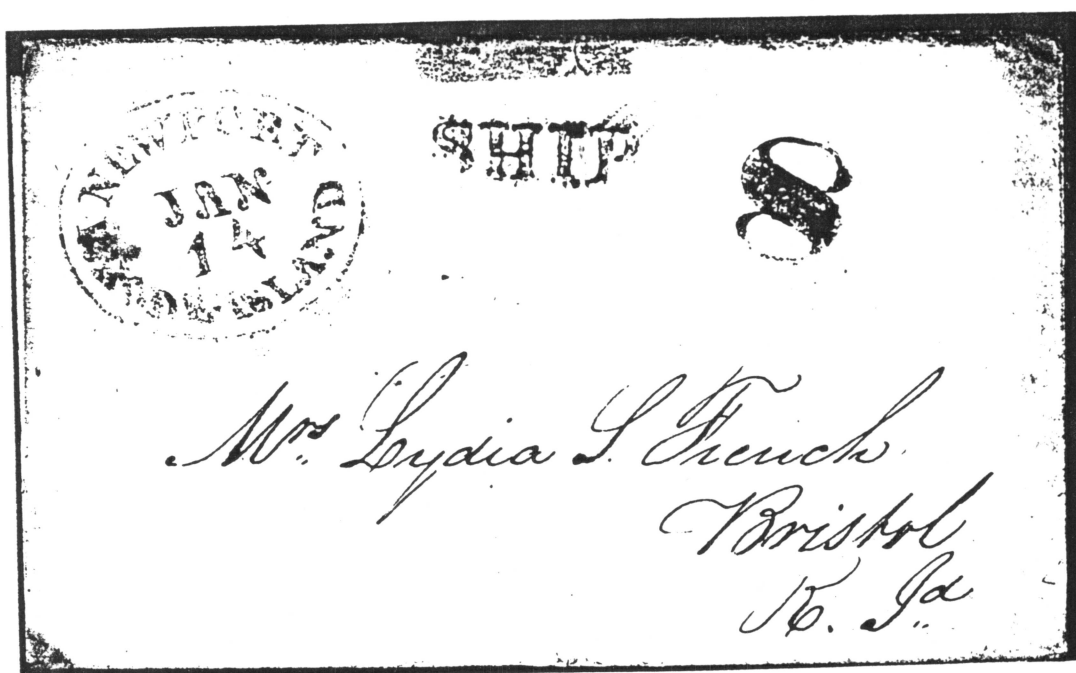 NEWPORT
JAN
14
RHODE ISLAND
SHIP
8
Mrs. Lydia S. French
Bristol
R. Id.